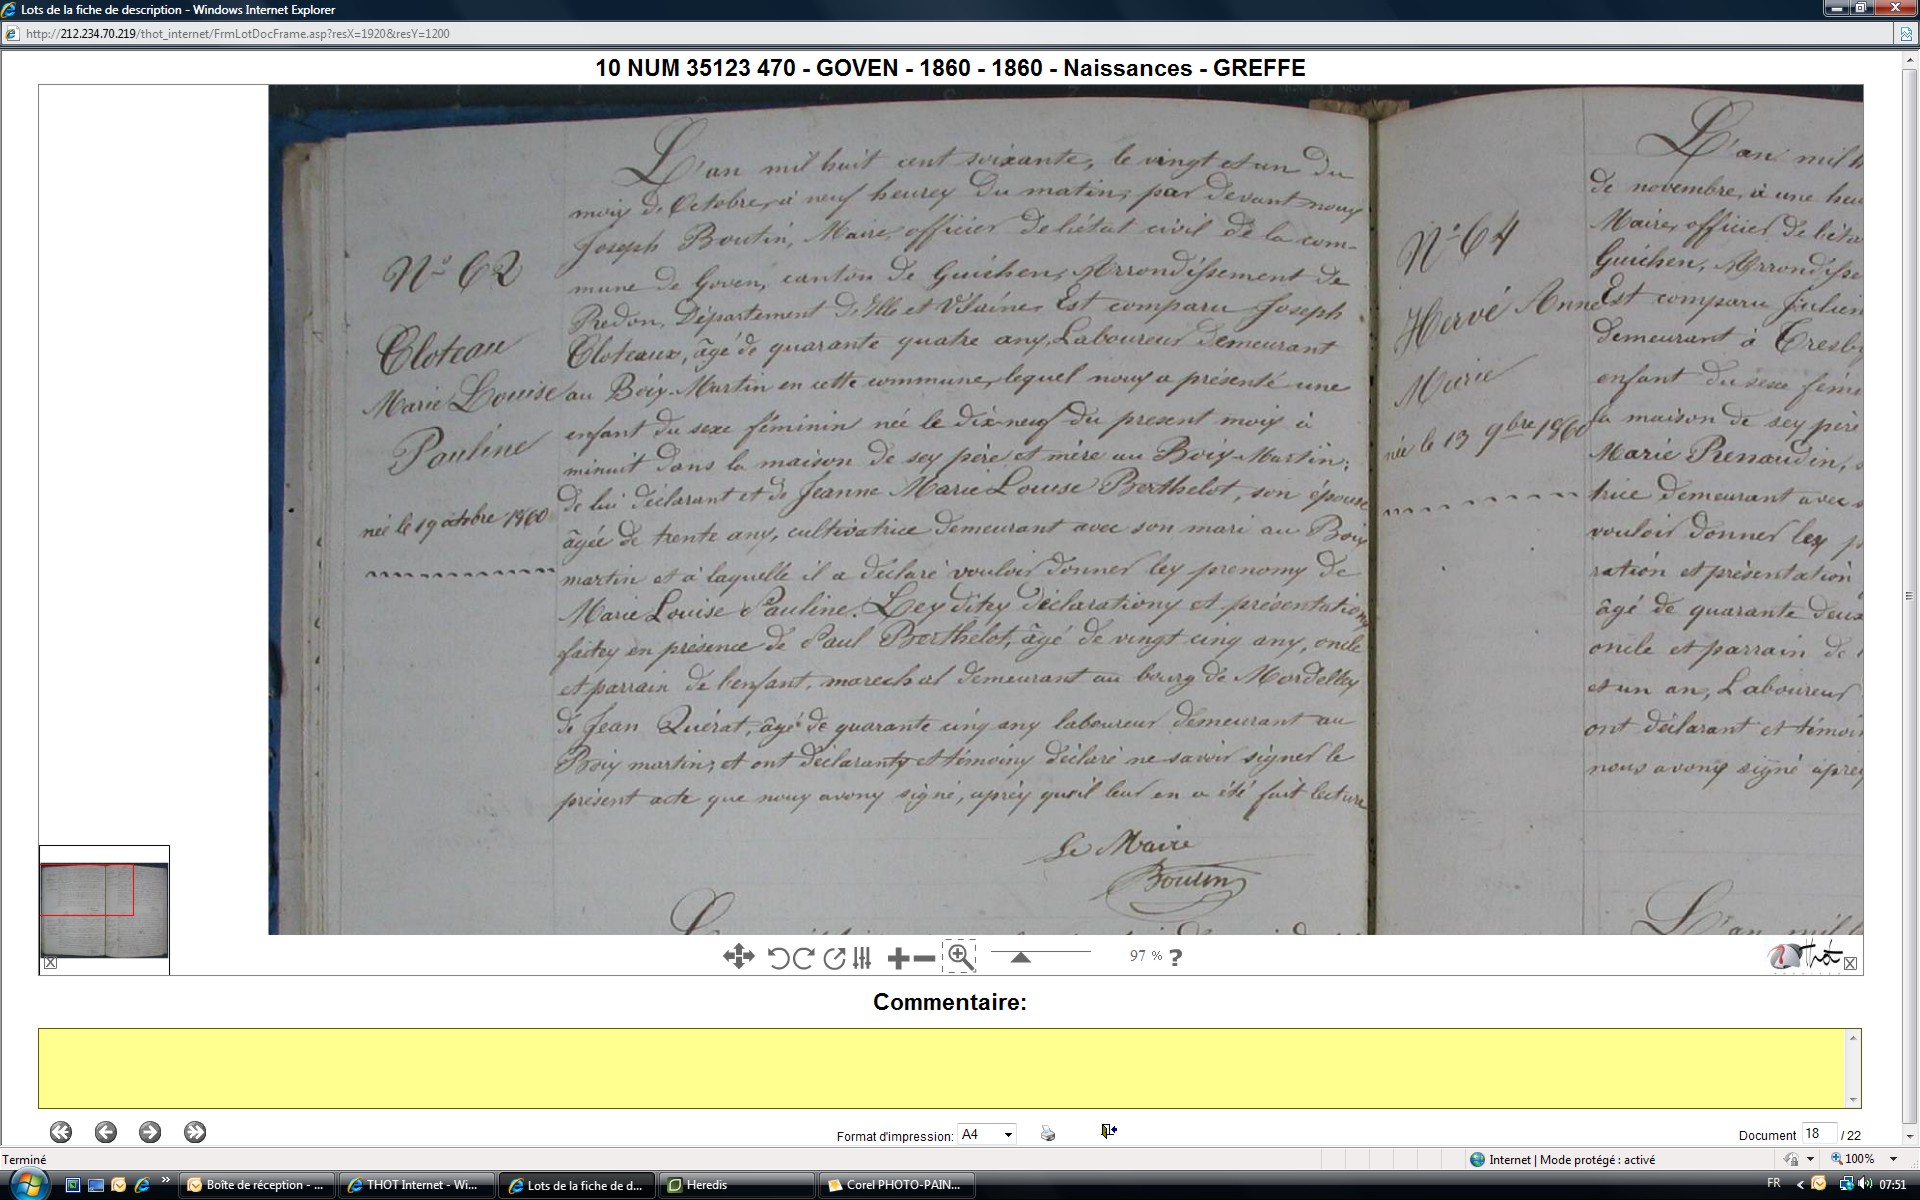 Lots de la fiche de description - Windows Internet Explorer
http://212.234.70.219/thot_internet/FrmLotDocFrame.asp?resX=1920&resY=1200
10 NUM 35123 470 - GOVEN - 1860 - 1860 - Naissances - GREFFE
N° 62
Cloteau
Marie Louise
Pauline
née le 19 octobre 1860
L'an mil huit cent soixante, le vingt et un du
mois d'Octobre, à neuf heures du matin, par devant nous
Joseph Boutin, Maire, officier de l'état civil de la com-
mune de Goven, canton de Guichen, Arrondissement de
Redon, Département d'Ille et Vilaine, Est comparu Joseph
Cloteaux, âgé de quarante quatre ans, Laboureur demeurant
au Bois-Martin en cette commune, lequel nous a présenté une
enfant du sexe féminin née le dix-neuf du présent mois à
minuit dans la maison de ses père et mère au Bois-Martin;
de lui déclarant et de Jeanne Marie Louise Berthelot, son épouse
âgée de trente ans, cultivatrice demeurant avec son mari au Bois
martin et à laquelle il a déclaré vouloir donner les prenoms de
Marie Louise Pauline. Les dites déclarations et présentations
faites en présence de Paul Berthelot, âgé de vingt cinq ans, oncle
et parrain de l'enfant, marechal demeurant au bourg de Mordelles
de Jean Quérat, âgé de quarante cinq ans laboureur demeurant au
Bois martin; et ont déclarants et témoins déclaré ne savoir signer le
présent acte que nous avons signé, après qu'il leur en a été fait lecture
Le Maire
Boutin
N° 64
Hervé Anne
Marie
née le 13 9bre 1860
L'an mil h
de novembre, à une heu
Maire, officier de l'éta
Guichen, Arrondisse
Est comparu Julien
demeurant à Cresby
enfant du sexe fémi
la maison de ses père
Marie Renaudin,
trice demeurant avec s
vouloir donner les p
ration et présentation
âgé de quarante deux
oncle et parrain de l
et un an, Laboureur
ont déclarant et témoin
nous avons signé après
L'an mil
97 % ?
Thot
Commentaire:
Format d'impression: A4
Document 18 / 22
Terminé
Internet | Mode protégé : activé
100%
Boîte de réception - ...
THOT Internet - Wi...
Lots de la fiche de d...
Heredis
Corel PHOTO-PAIN...
FR
07:51